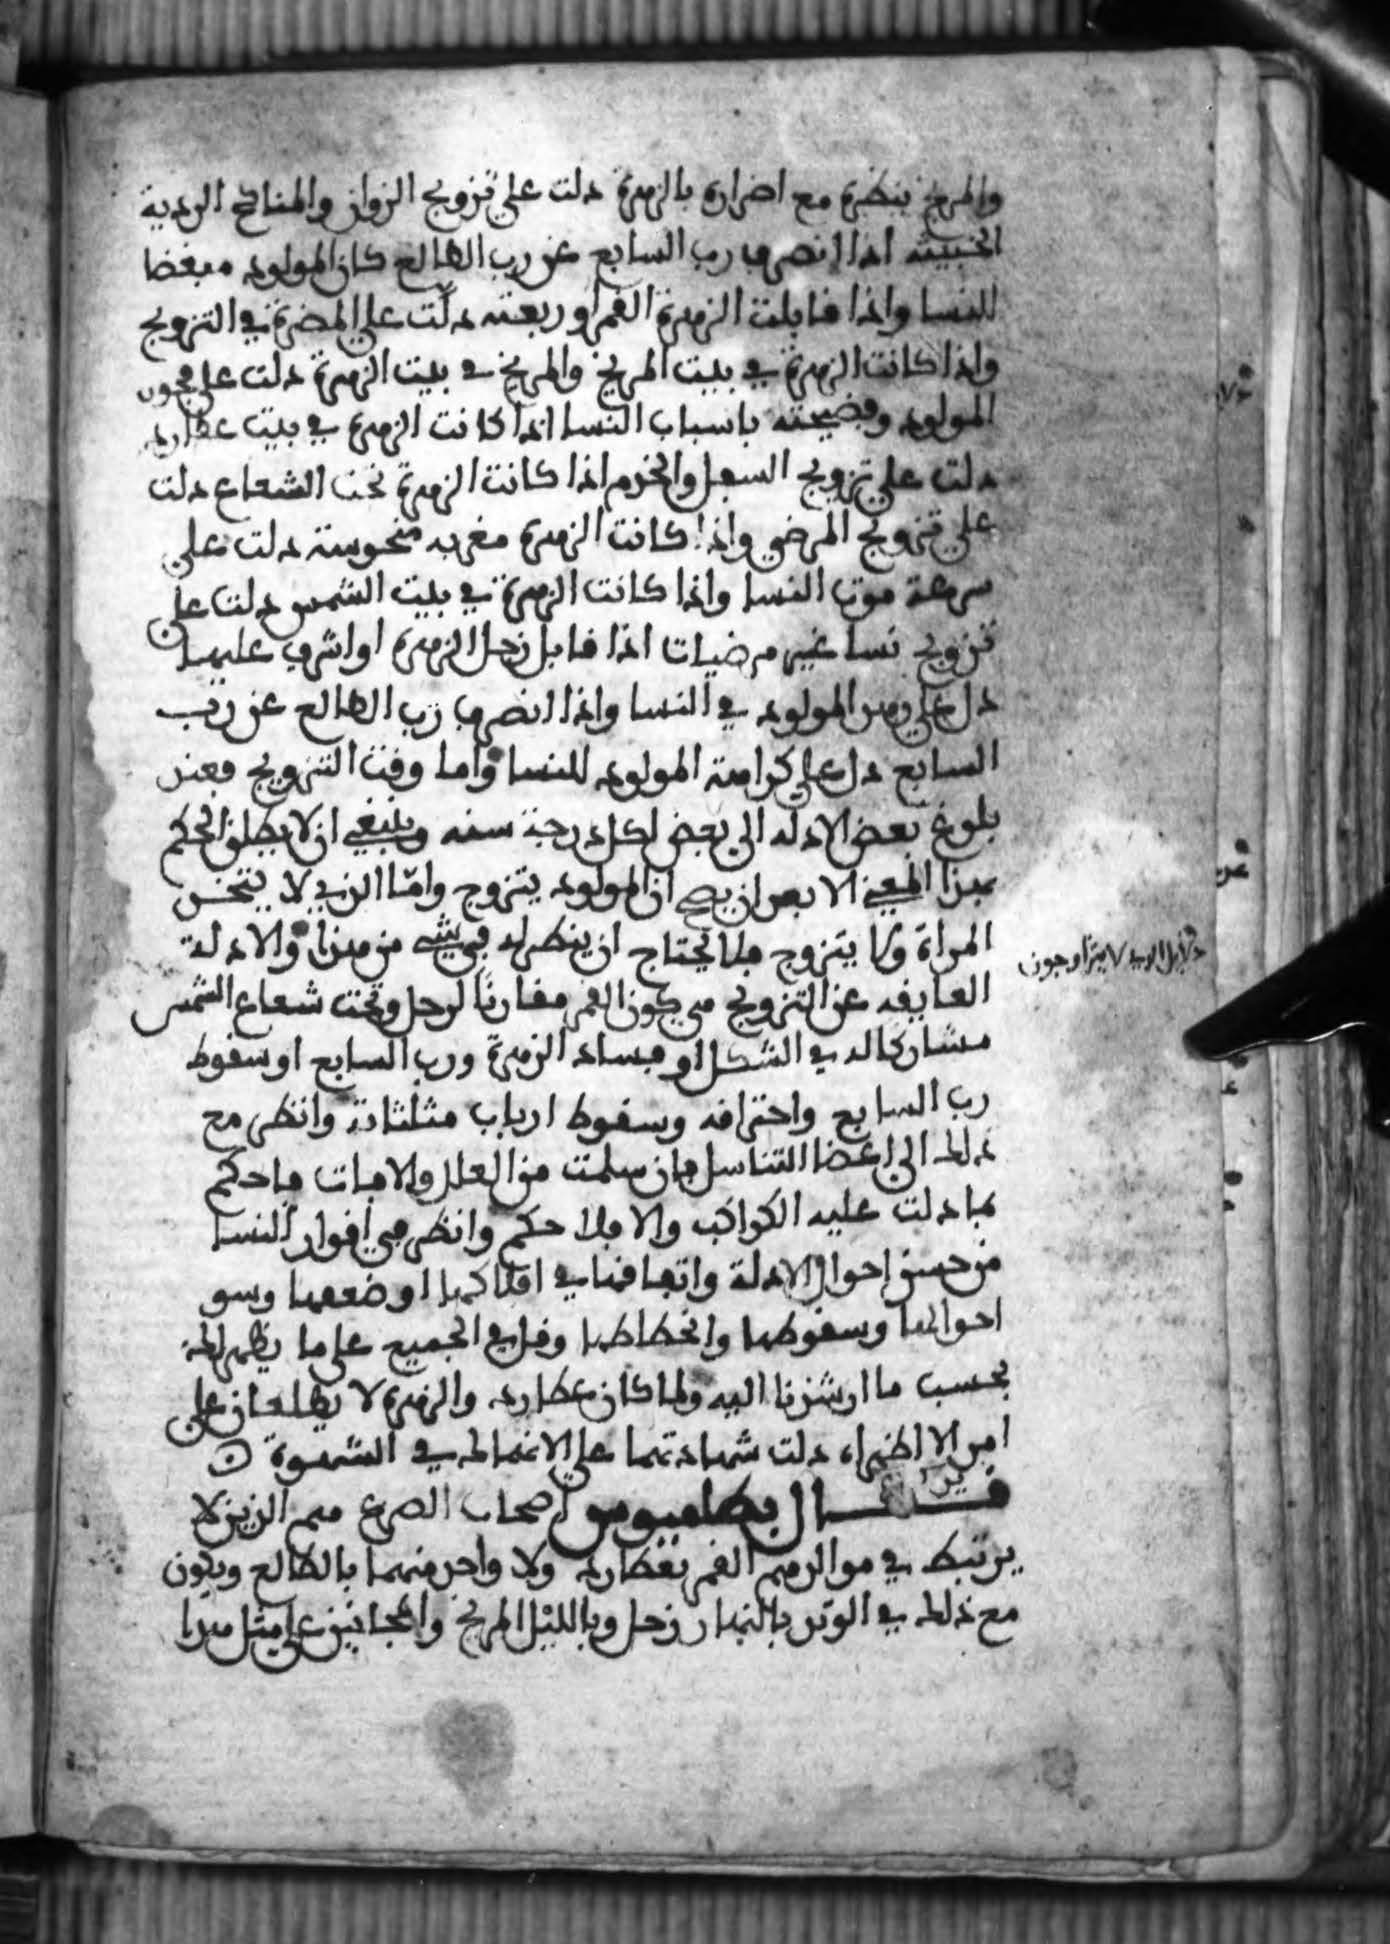 والمريخ ينظره مع اضراره بالزهرة دلت على تزويج الزوان والمناكح الردية
الخبيثه اذا انصرف رب السابع عن رب الطالع كان المولود مبغضا
للنسا واذا قابلت الزهرة القمر او ربعته دلت على المضرة في التزويج
واذا كانت الزهرة في بيت المريخ والمريخ في بيت الزهرة دلت على فجور
المولود وفضيحته باسباب النسا اذا كانت الزهرة في بيت عطارد
دلت على تزويج السفل والخدم اذا كانت الزهرة تحت الشعاع دلت
على تزويج المرضى واذا كانت الزهرة مغربه منحوسة دلت على
سرعة موت النسا واذا كانت الزهرة في بيت الشمس دلت على
تزويج نسا غير مرضيات اذا قابل زحل الزهرة او اشرف عليها
دل على المولود في النسا واذا انصرف رب الطالع عن رب
السابع دل على كرامة المولود للنسا واما وقت التزويج فعند
بلوغ بعض الادله الى بعض لكل درجة سنه وينبغي ان لا يطلق الحكم
بهذا المعنى الا بعد ان يصح ان المولود يتزوج واما الذي لا
المراة ولا يتزوج فلا يحتاج ان ينظر له في شي من هذا والادلة
دلايل الذي لا يتزاوجون
العايقه عن التزويج هي كون القمر مقارنا لزحل وتحت شعاع الشمس
مشاركا له في الشكل او فساد الزهرة ورب السابع او سقوط
رب السابع واحتراقه وسقوط ارباب مثلثاته وانظر مع
ذلك الى اعضا التناسل فان سلمت من العلل والافات فاحكم
بما دلت عليه الكواكب والا فلا حكم وانظر في اقدار النسا
من حسن احوال الادلة واتفاقها في افلاكها او ضعفها وسو
احوالها وسقوطها وانحطاطها وقل في الجميع على ما يظهر لك
بحسب ما ارشدنا اليه ولما كان عطارد والزهرة لا يطلعان على
امر الا اظهراه دلت شهادتهما على الانهماك في الشهوة
قال بطلميوس اصحاب الصرع هم الذين لا
يرتبط في مواليدهم القمر بعطارد ولا واحد منهما بالطالع ويكون
مع ذلك في الوتد بالنهار زحل وبالليل المريخ والمجانين على مثل هذا